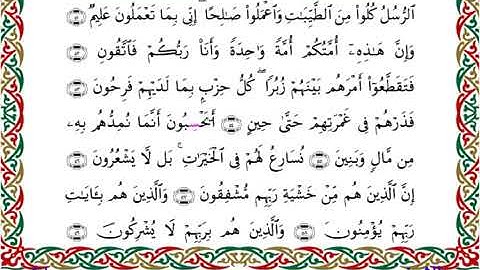 ٱلرُّسُلُ كُلُوا۟ مِنَ ٱلطَّيِّبَـٰتِ وَٱعْمَلُوا۟ صَـٰلِحًا ۖ إِنِّى بِمَا تَعْمَلُونَ عَلِيمٌ ﴿٥١﴾
وَإِنَّ هَـٰذِهِۦٓ أُمَّتُكُمْ أُمَّةً وَٰحِدَةً وَأَنَا۠ رَبُّكُمْ فَٱتَّقُونِ ﴿٥٢﴾
فَتَقَطَّعُوٓا۟ أَمْرَهُم بَيْنَهُمْ زُبُرًا ۖ كُلُّ حِزْبٍۭ بِمَا لَدَيْهِمْ فَرِحُونَ ﴿٥٣﴾
فَذَرْهُمْ فِى غَمْرَتِهِمْ حَتَّىٰ حِينٍ ﴿٥٤﴾ أَيَحْسَبُونَ أَنَّمَا نُمِدُّهُم بِهِۦ
مِن مَّالٍ وَبَنِينَ ﴿٥٥﴾ نُسَارِعُ لَهُمْ فِى ٱلْخَيْرَٰتِ ۚ بَل لَّا يَشْعُرُونَ ﴿٥٦﴾
إِنَّ ٱلَّذِينَ هُم مِّنْ خَشْيَةِ رَبِّهِم مُّشْفِقُونَ ﴿٥٧﴾ وَٱلَّذِينَ هُم بِـَٔايَـٰتِ
رَبِّهِمْ يُؤْمِنُونَ ﴿٥٨﴾ وَٱلَّذِينَ هُم بِرَبِّهِمْ لَا يُشْرِكُونَ ﴿٥٩﴾